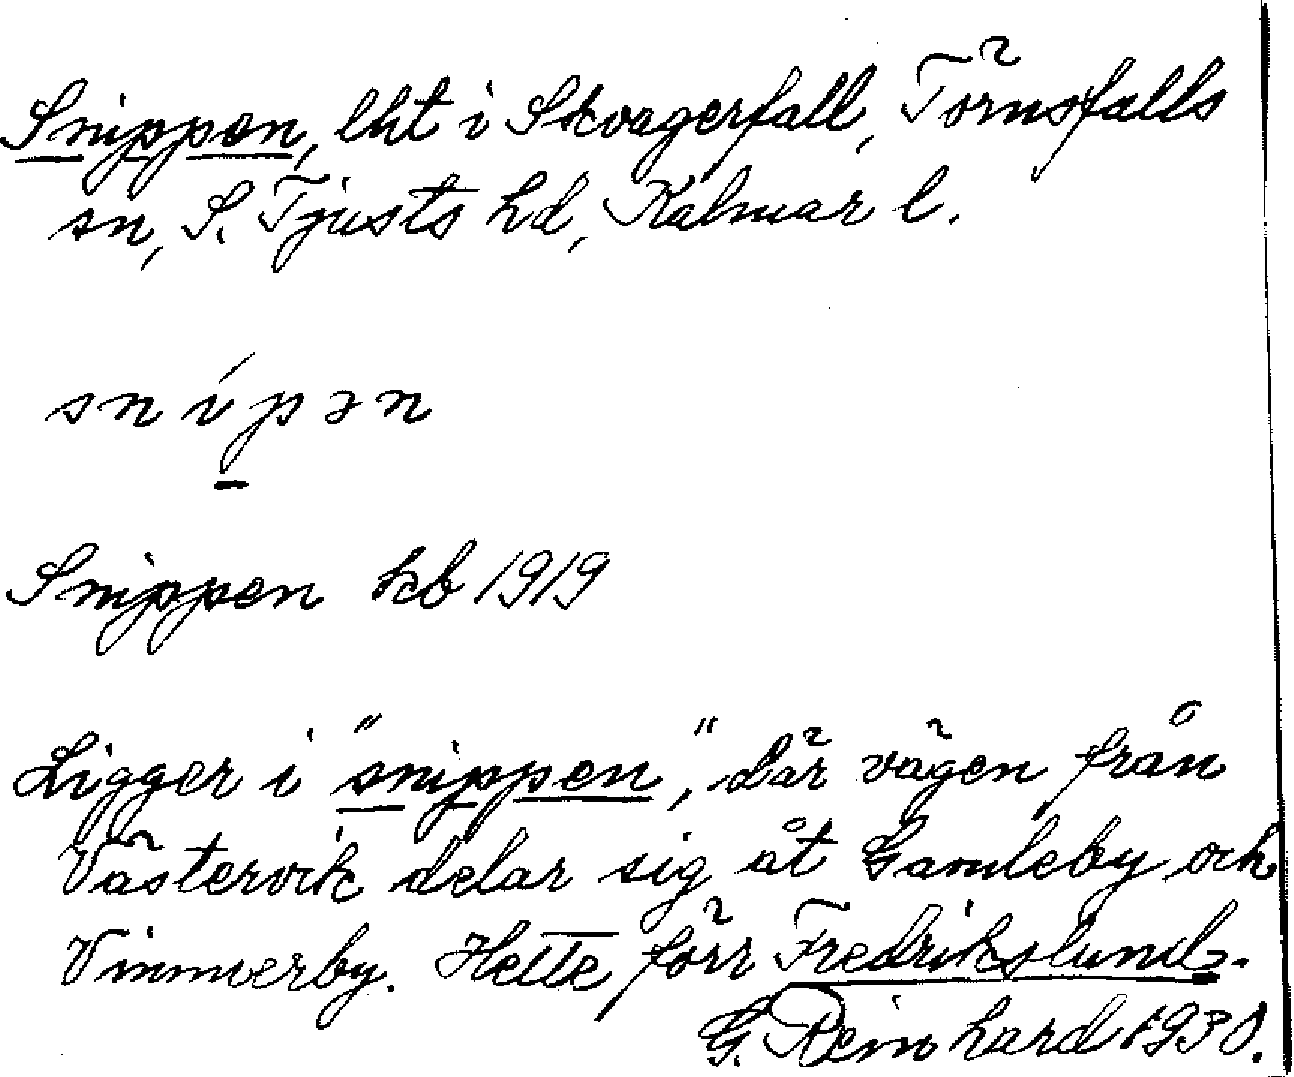 Snippen, lht i Skvagerfall, Törnsfalls
sn, S. Tjusts hd, Kalmar l.
snípən
Snippen kb 1919
Ligger i "snippen," där vägen från
Västervik delar sig åt Gamleby och
Vimmerby. Hette förr Fredrikslund.
G. Reinhard 1930.